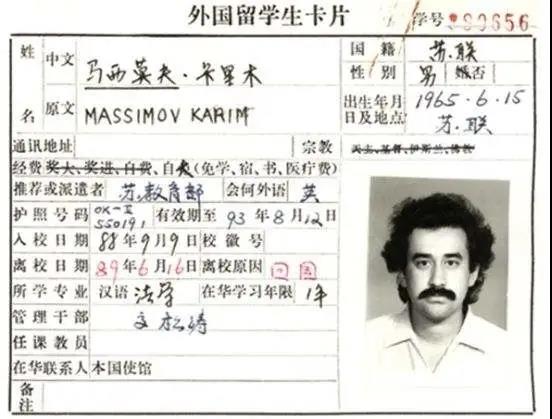 外国留学生卡片
学号 *80656
姓名 中文 马西莫夫·卡里木
国籍 苏联
性别 男 婚否
原文 MASSIMOV KARIM
出生年月日及地点 1965.6.15 苏.联
通讯地址 宗教 天主、基督、伊斯兰、佛教
经费 奖大、奖进、自费、自(免学、宿、书、医疗费)
推荐或派遣者 苏.教育部 会何外语 英
护照号码 OK-II 550191 有效期至 93年8月12日
入校日期 88年9月9日 校徽号
离校日期 89年6月16日 离校原因 回国
所学专业 汉语 法学 在华学习年限 1年
管理干部
任课教员
在华联系人 本国使馆
备注